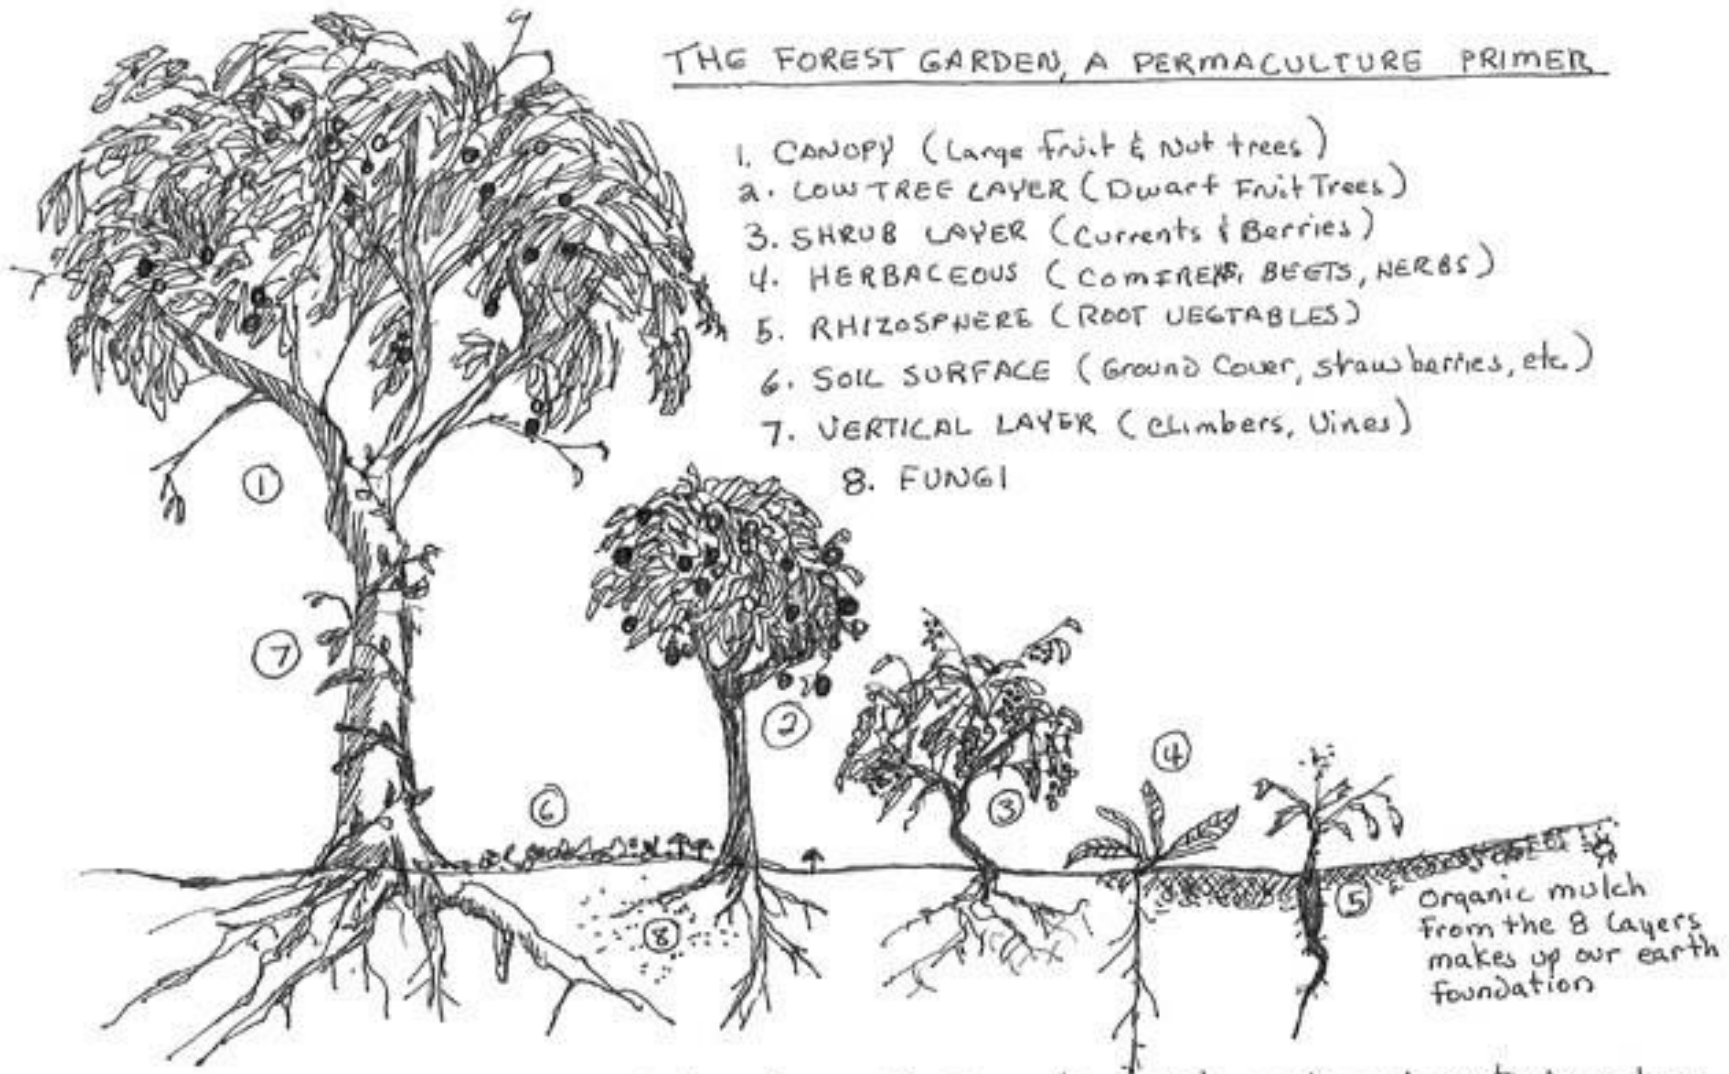 THE FOREST GARDEN, A PERMACULTURE PRIMER
1. CANOPY (Large fruit & Nut trees)
2. LOW TREE LAYER (Dwarf Fruit Trees)
3. SHRUB LAYER (Currents & Berries)
4. HERBACEOUS (COMFREY, BEETS, HERBS)
5. RHIZOSPHERE (ROOT VEGTABLES)
6. SOIL SURFACE (Ground Cover, strawberries, etc.)
7. VERTICAL LAYER (Climbers, Vines)
8. FUNGI
1
7
2
4
6
3
5
8
Organic mulch
from the 8 layers
makes up our earth
foundation